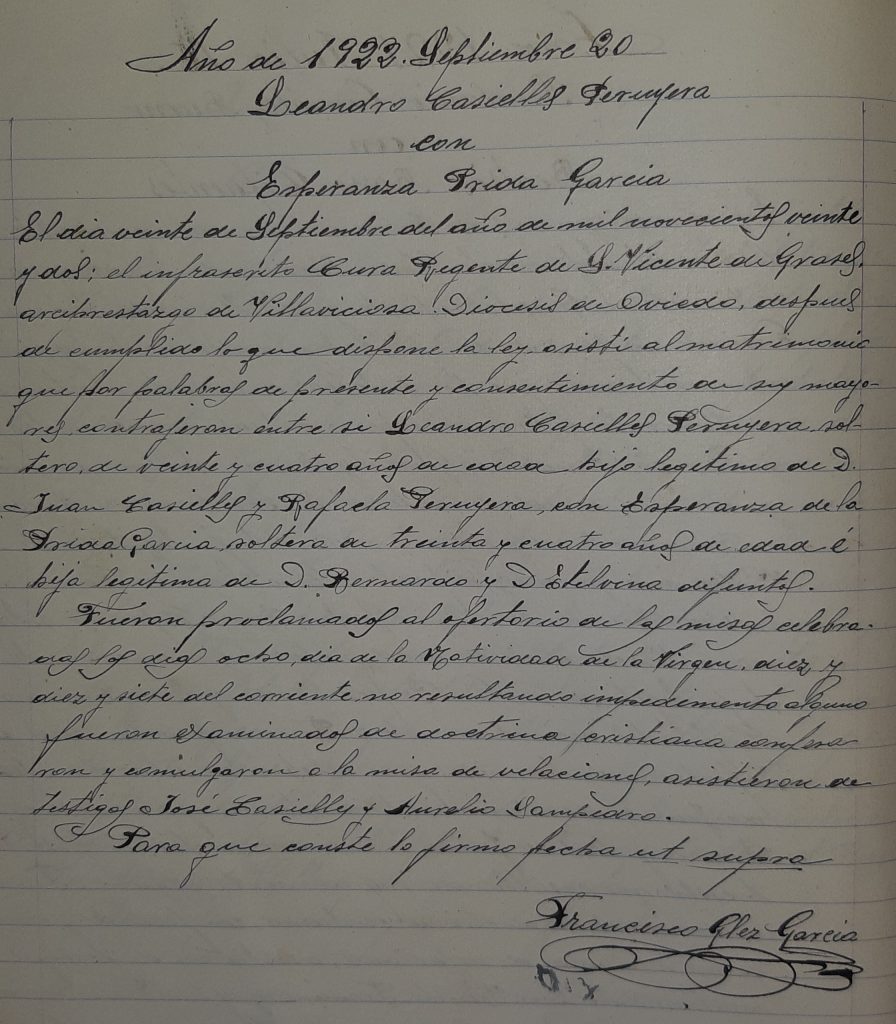 Año de 1922. Septiembre 20
Leandro Casielles Peruyera
con
Esperanza Prida Garcia
El dia veinte de Septiembre del año de mil novecientos veinte
y dos; el infrascrito Cura Regente de S. Vicente de Grases,
arciprestazgo de Villaviciosa Diocesis de Oviedo, despues
de cumplido lo que dispone la ley, asisti al matrimonio
que por palabras de presente y consentimiento de sus mayo-
res, contrajeron entre si Leandro Casielles Peruyera, sol-
tero, de veinte y cuatro años de edad hijo legitimo de D.
Juan Casielles y Rafaela Peruyera, con Esperanza de la
Prida Garcia, soltera de treinta y cuatro años de edad é
hija legitima de D. Bernardo y D Etelvina difuntos.
Fueron proclamados al ofertorio de las misas celebra-
das los dias ocho, dia de la Natividad de la Virgen, diez y
diez y siete del corriente, no resultando impedimento alguno
fueron examinados de doctrina cristiana confesa
ron y comulgaron a la misa de velaciones, asistieron de
testigos José Casielles y Aurelio Sampedro.
Para que conste lo firmo fecha ut supra
Francisco Glez Garcia